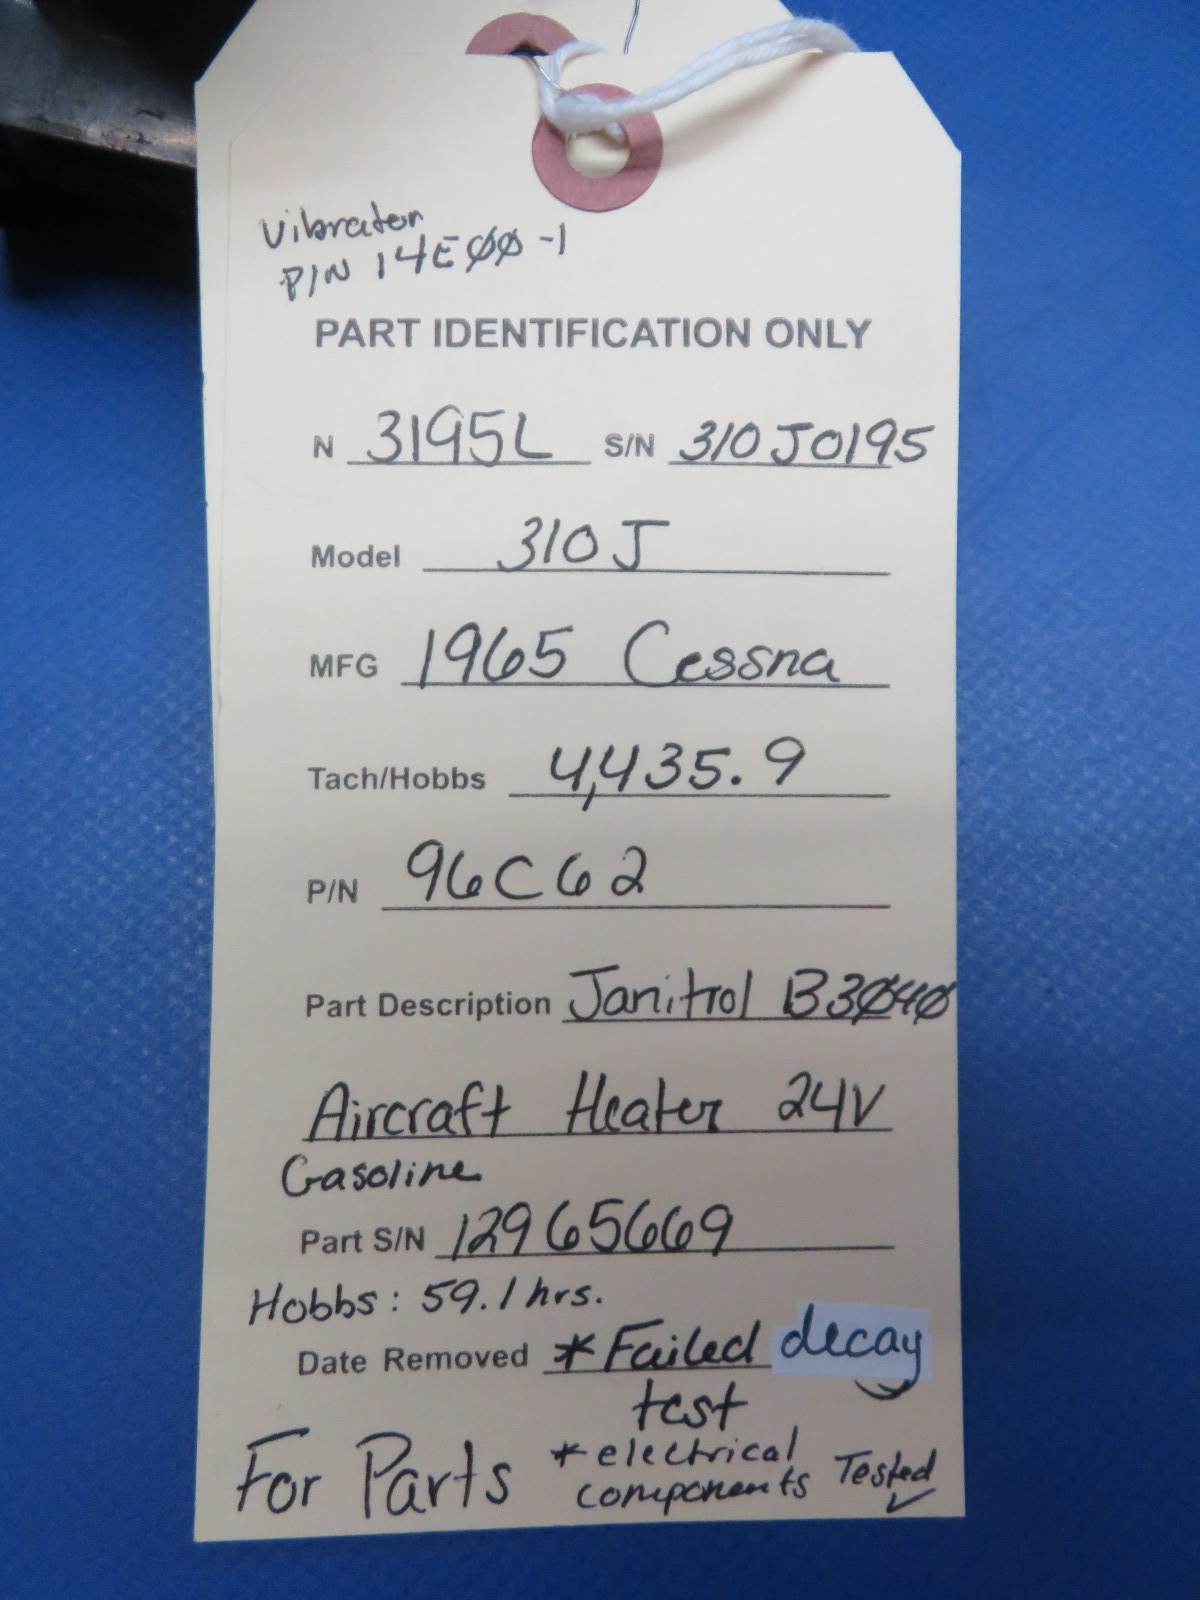 Vibrator
P/N 14E00-1
PART IDENTIFICATION ONLY
N 3195L S/N 310J0195
Model 310J
MFG 1965 Cessna
Tach/Hobbs 4,435.9
P/N 96C62
Part Description Janitrol B3040
Aircraft Heater 24V
Gasoline
Part S/N 12965669
Hobbs: 59.1 hrs.
Date Removed *Failed decay
test
For Parts *electrical
components Tested ✓